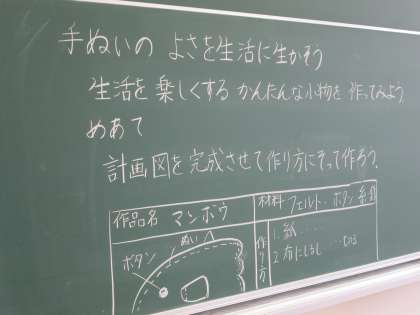 手ぬいの よさを生活に生かそう
生活を楽しくする かんたんな小物を 作ってみよう
めあて
計画図を完成させて作り方にそって作ろう。
作品名 マンボウ
材料 フェルト・ボタン 糸
ぬい
ボタン
作り方
1. 紙.....
2 布にしるし...